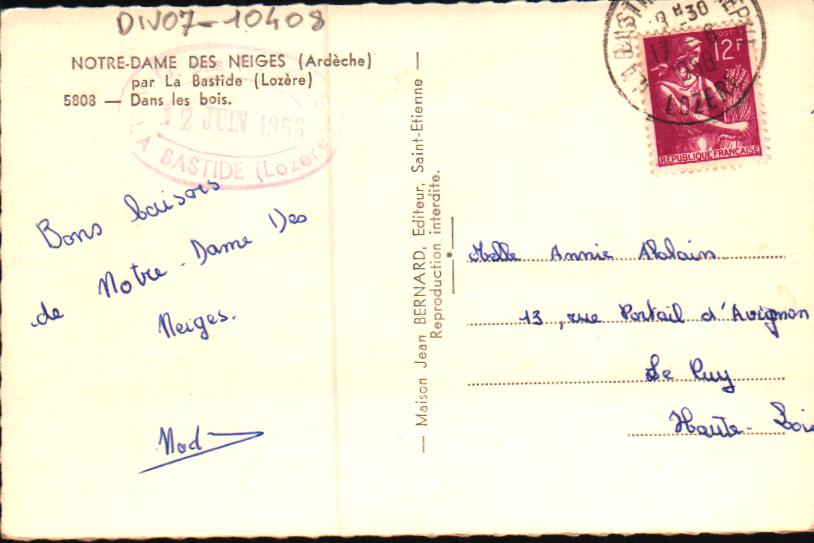 DIV07-10408
NOTRE-DAME DES NEIGES (Ardèche)
par La Bastide (Lozère)
5808 — Dans les bois.
12 JUIN 1958
LA BASTIDE (Lozère)
Bons baisers
de Notre-Dame Des
Neiges.
— Maison Jean BERNARD, Editeur, Saint-Etienne —
Reproduction interdite.
8 H 30
1958
LOZERE
12F
POSTES
REPUBLIQUE FRANÇAISE
Melle Annie
13, rue Portail d'Avignon
Le Puy
Haute-Loi